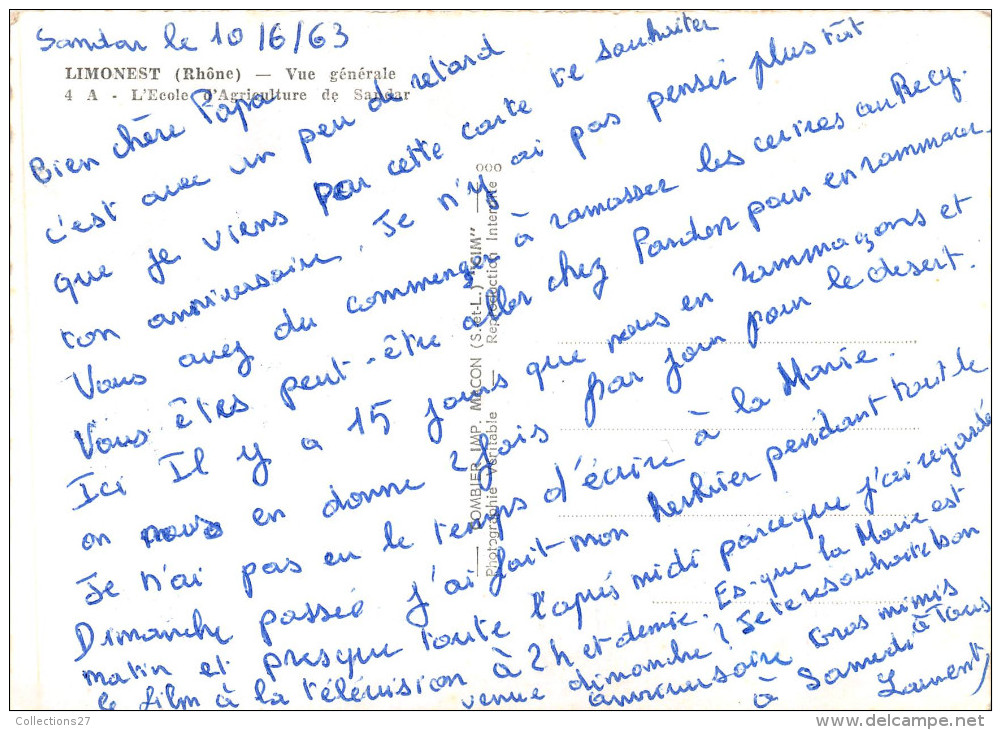 Sandar le 10/6/63
LIMONEST (Rhône) — Vue générale
4 A - L'Ecole d'Agriculture de Sandar
Bien chère Papa
c'est avec un peu de retard
que je viens par cette carte te souhaiter
ton anniversaire. Je n'y ai pas penser plus tôt
Vous avez du commencer à ramasser les cerises au Recy.
Vous êtes peut-être aller chez Pardon pour en rammasser
Ici Il y a 15 jours que nous en rammaçons et
on nous en donne 2 fois par jour pour le desert.
Je n'ai pas eu le temps d'écrire à la Marie.
Dimanche passé j'ai fait mon herbier pendant tout le
matin et presque toute l'après midi parceque j'ai regardé
le film à la télévision à 2h et demie. Es-que la Marie est
venue dimanche ? Je te resouhaite bon
anniversaire Gros mimis
à Tous
à Samedi
Laurent
COMBIER IMP. MACON (S.-et-L.) "CIM"
Photographie Véritable — Reproduction Interdite
Collections27
www.delcampe.net